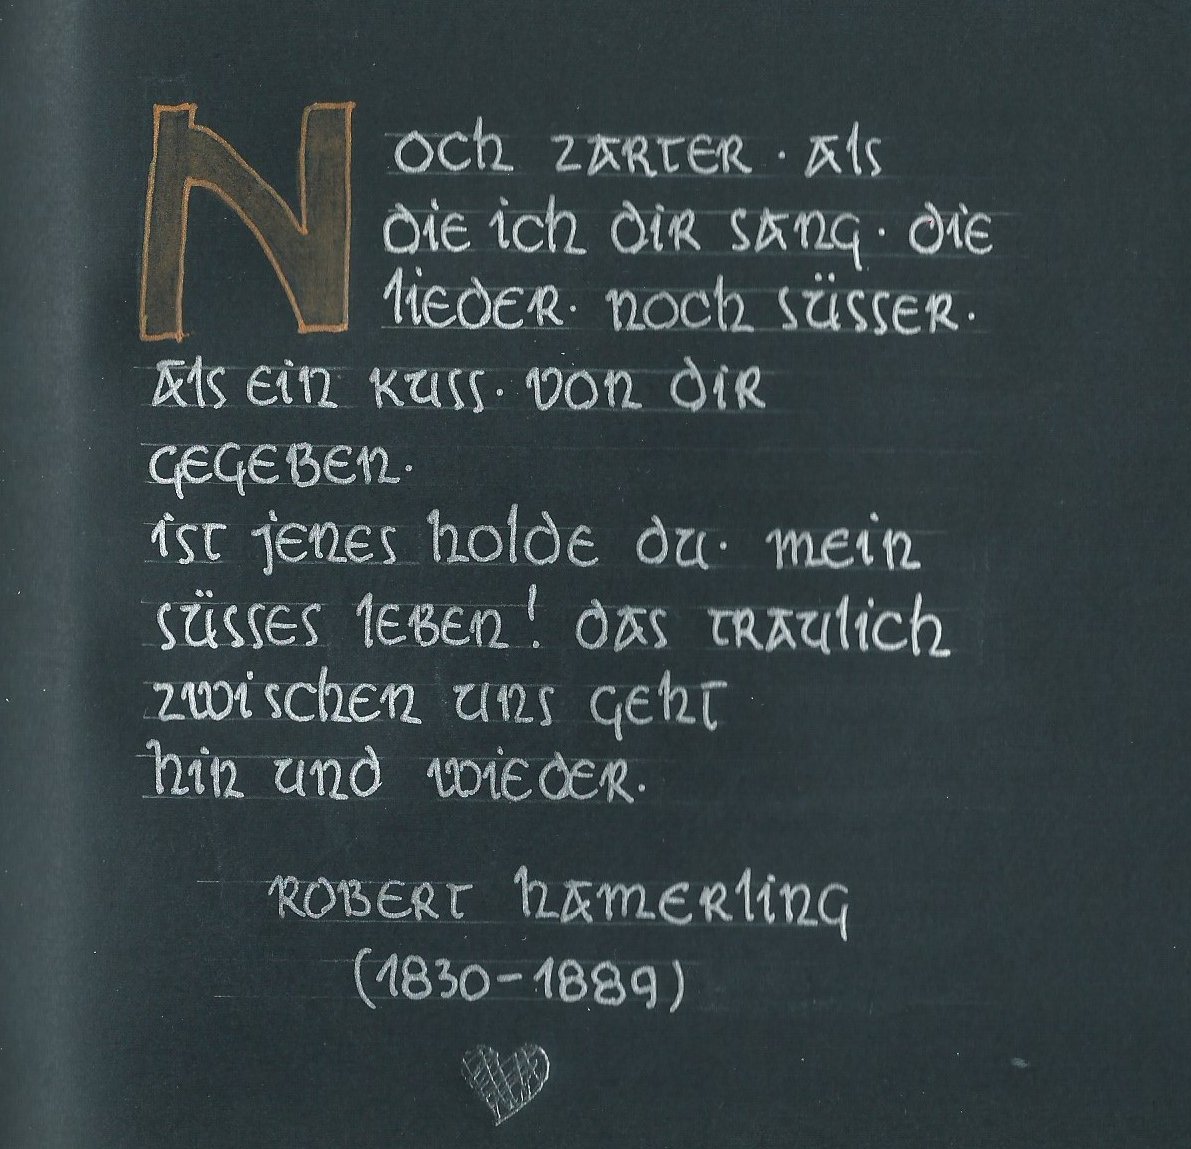 Noch zarter · als
die ich dir sang · die
lieder · noch süsser ·
als ein kuss · von dir
gegeben ·
ist jenes holde du · mein
süsses leben! das traulich
zwischen uns geht
hin und wieder.
Robert Hamerling
(1830-1889)